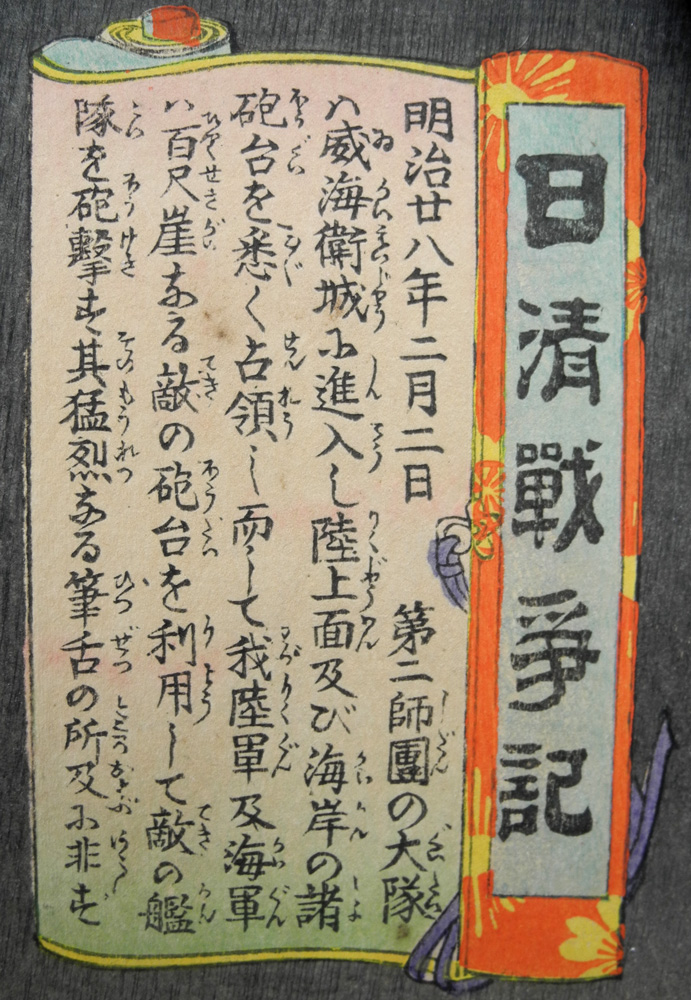 日清戰爭記
明治廿八年二月二日 第二師團の大隊
ハ威海衛城に進入し陸上面及び海岸の諸
砲台を悉く占領し而して我陸軍及海軍
ハ百尺崖なる敵の砲台を利用して敵の艦
隊を砲撃す其猛烈なる筆舌の所及に非ず